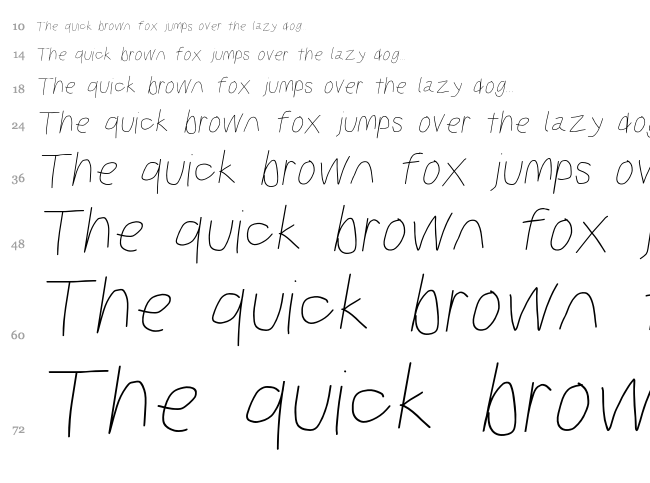 10 The quick brown fox jumps over the lazy dog
14 The quick brown fox jumps over the lazy dog...
18 The quick brown fox jumps over the lazy dog...
24 The quick brown fox jumps over the lazy do
36 The quick brown fox jumps ov
48 The quick brown fox j
60 The quick brown
72 The quick brow